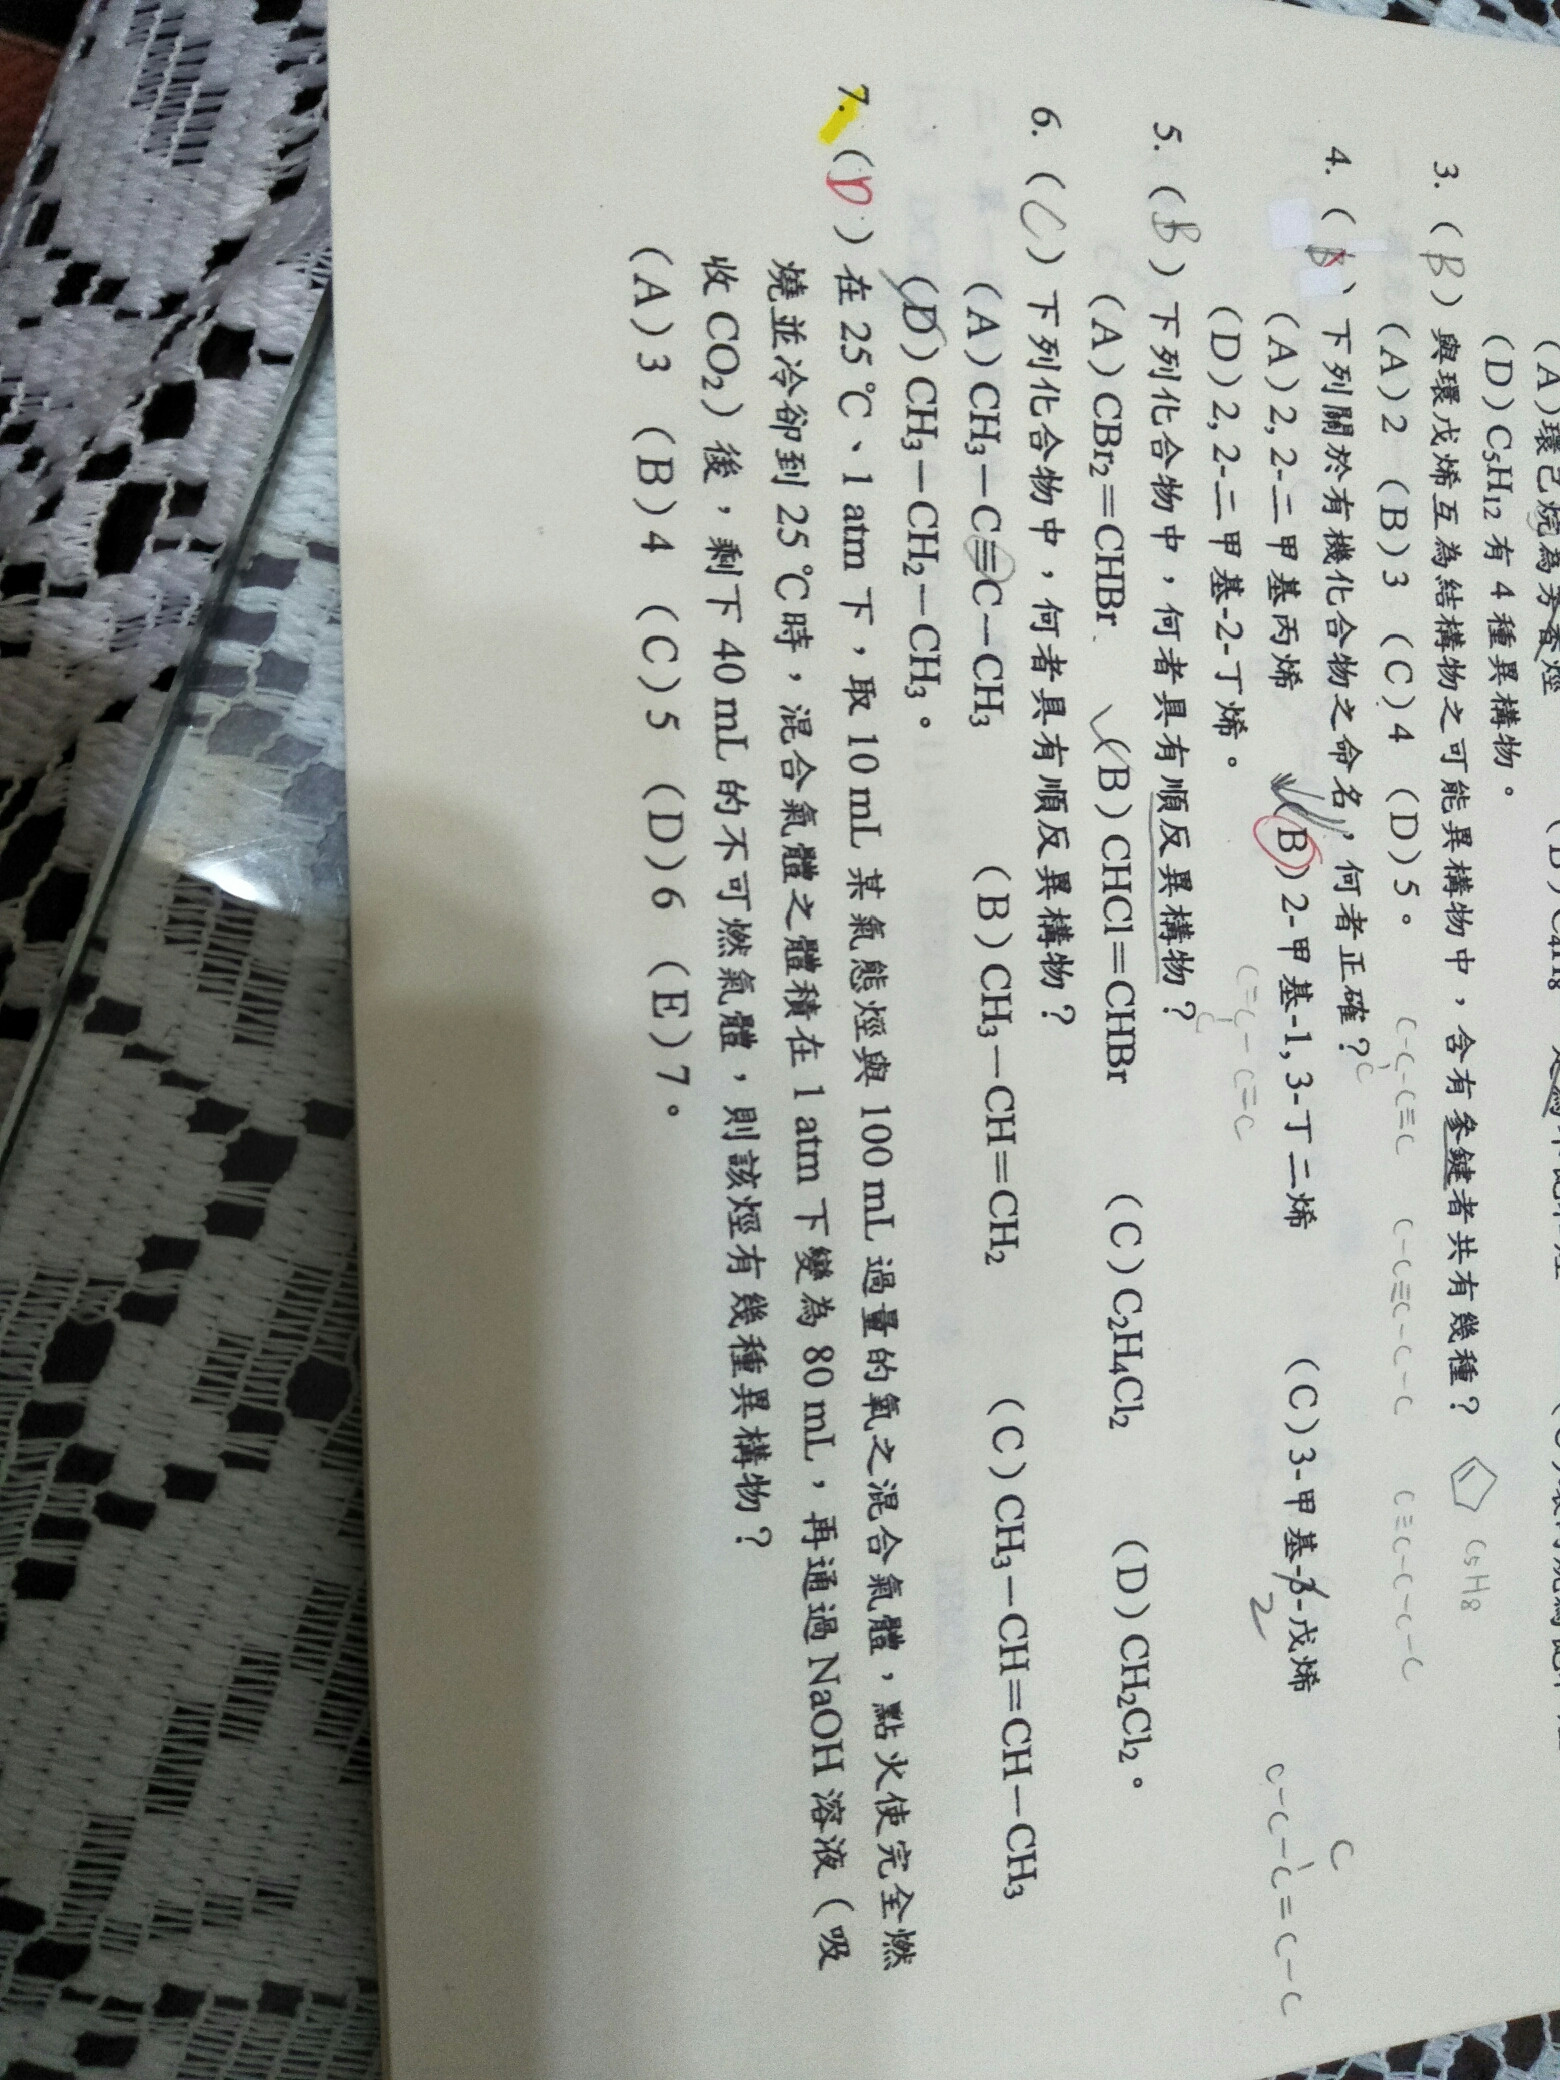 (D) C5H12 有 4 種異構物。
3. (B) 與環戊烯互為結構物之可能異構物中，含有參鍵者共有幾種？ C5H8
(A) 2 (B) 3 (C) 4 (D) 5。
C-C-C≡C C-C≡C-C-C C≡C-C-C-C
C
4. 下列關於有機化合物之命名，何者正確？
(A) 2, 2-二甲基丙烯 (B) 2-甲基-1, 3-丁二烯 (C) 3-甲基-戊烯
2
C
C-C-C=C-C
(D) 2, 2-二甲基-2-丁烯。
C=C-C=C
C
5. (B) 下列化合物中，何者具有順反異構物？
(A) CBr2=CHBr (B) CHCl=CHBr (C) C2H4Cl2 (D) CH2Cl2。
6. (C) 下列化合物中，何者具有順反異構物？
(A) CH3-C≡C-CH3 (B) CH3-CH=CH2 (C) CH3-CH=CH-CH3
(D) CH3-CH2-CH3。
7. (D) 在 25 ℃、1 atm 下，取 10 mL 某氣態烴與 100 mL 過量的氧之混合氣體，點火使完全燃
燒並冷卻到 25 ℃時，混合氣體之體積在 1 atm 下變為 80 mL，再通過 NaOH 溶液（吸
收 CO2）後，剩下 40 mL 的不可燃氣體，則該烴有幾種異構物？
(A) 3 (B) 4 (C) 5 (D) 6 (E) 7。